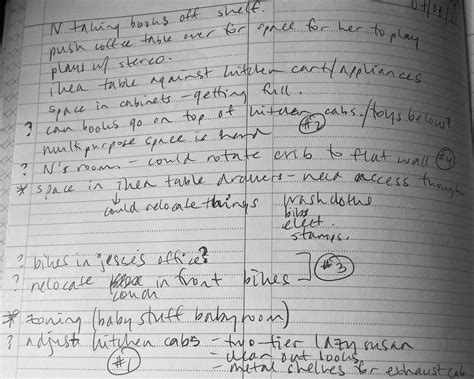 N taking books off shelf.
push coffee table over for space for her to play
plays w/ stereo.
ikea table against kitchen cart/appliances
space in cabinets - getting full.
? can books go on top of kitchen cabs./toys below?
multipurpose space is hard #2
? N's room - could rotate crib to flat wall #4
* space in ikea table drawers - need access though
↓ could relocate things
washcloths
bibs
elect.
stamps.
? bikes in jesse's office?
? relocate couch in front bikes #3
* zoning (baby stuff baby room)
? adjust kitchen cabs - two-tier lazy susan
#1 - clear out books
- metal shelves for exhaust cab